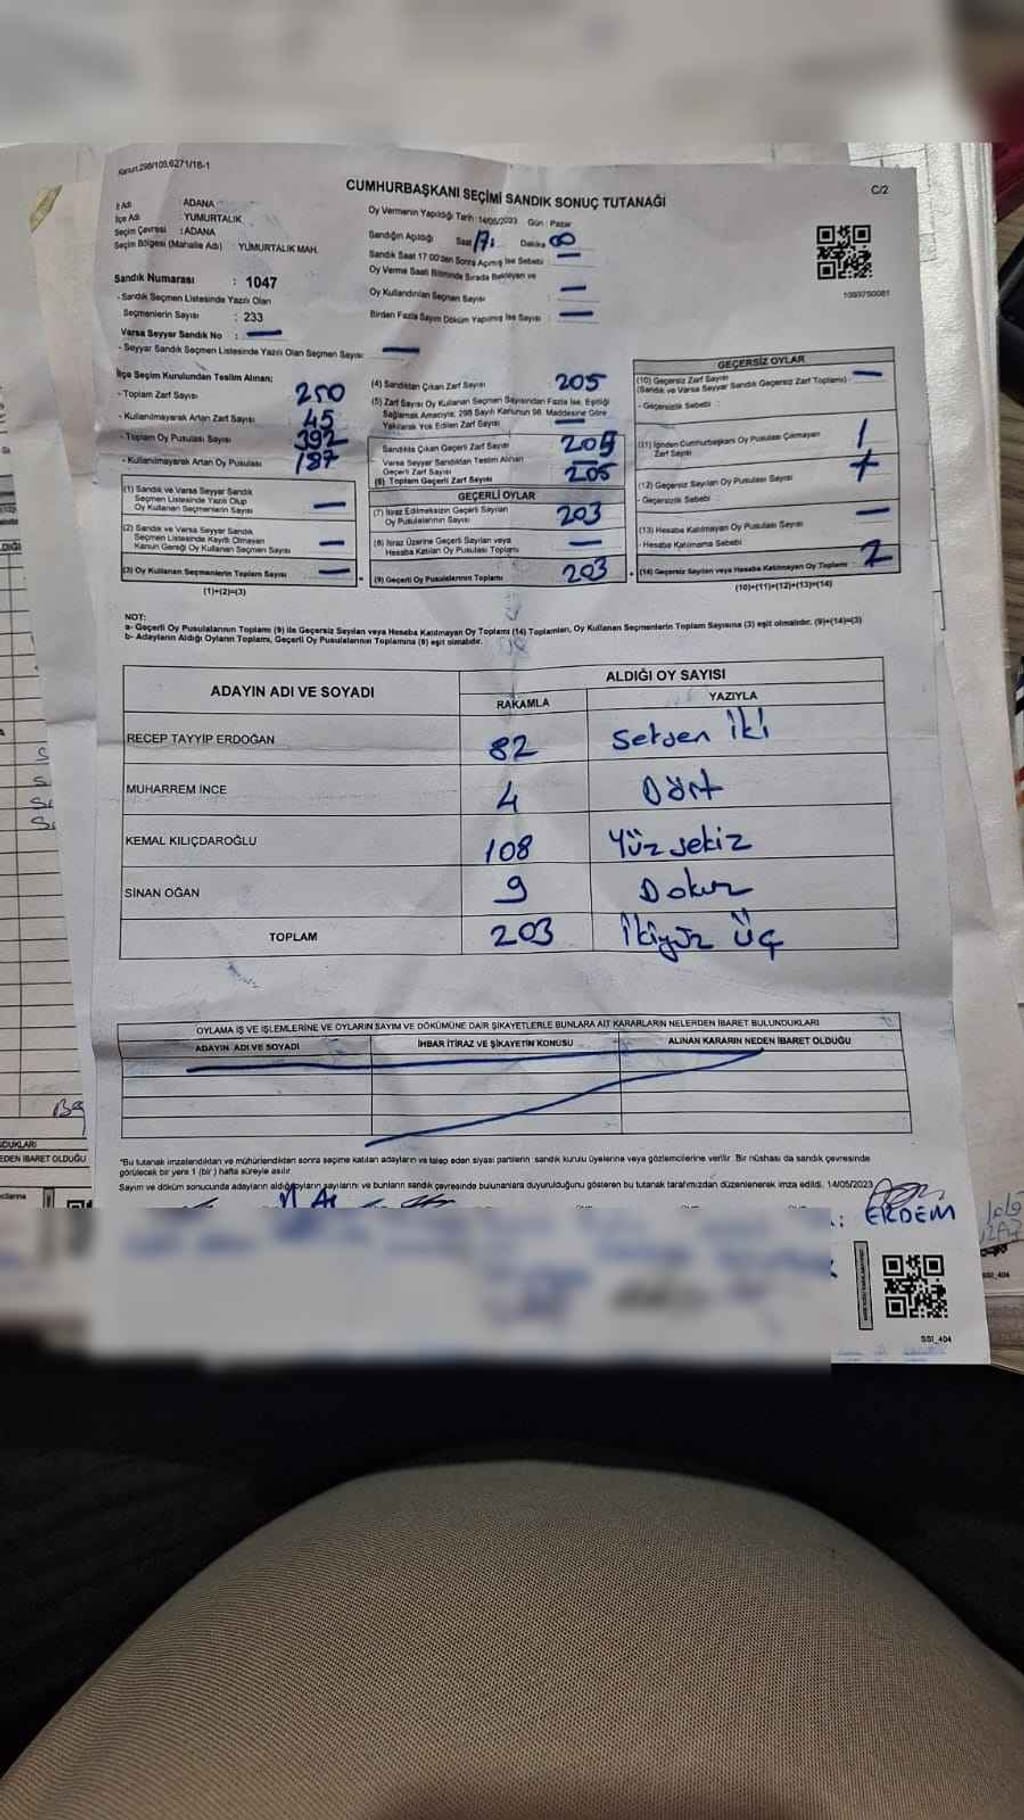 Kanun 298/109,6271/18-1
CUMHURBAŞKANI SEÇİMİ SANDIK SONUÇ TUTANAĞI
C/2
İl Adı ADANA
İlçe Adı YUMURTALIK
Seçim Çevresi : ADANA
Seçim Bölgesi (Mahalle Adı) : YUMURTALIK MAH.
Sandık Numarası : 1047
- Sandık Seçmen Listesinde Yazılı Olan
Seçmenlerin Sayısı : 233
Varsa Seyyar Sandık No : —
- Seyyar Sandık Seçmen Listesinde Yazılı Olan Seçmen Sayısı —
Oy Vermenin Yapıldığı Tarih: 14/05/2023 Gün : Pazar
Sandığın Açıldığı Saat 17: Dakika 00
Sandık Saat 17:00'den Sonra Açılmış İse Sebebi : —
Oy Verme Saati Bitiminde Sırada Bekleyen ve
Oy Kullandırılan Seçmen Sayısı : —
Birden Fazla Sayım Döküm Yapılmış İse Sayısı : —
İlçe Seçim Kurulundan Teslim Alınan;
- Toplam Zarf Sayısı 250
- Kullanılmayarak Artan Zarf Sayısı 45
- Toplam Oy Pusulası Sayısı 392
- Kullanılmayarak Artan Oy Pusulası 187
(1) Sandık ve Varsa Seyyar Sandık
Seçmen Listesinde Yazılı Olup
Oy Kullanan Seçmenlerin Sayısı —
(2) Sandık ve Varsa Seyyar Sandık
Seçmen Listesinde Kayıtlı Olmayan
Kanun Gereği Oy Kullanan Seçmen Sayısı —
(3) Oy Kullanan Seçmenlerin Toplam Sayısı —
(1)+(2)=(3)
(4) Sandıktan Çıkan Zarf Sayısı 205
(5) Zarf Sayısı Oy Kullanan Seçmen Sayısından Fazla İse, Eşitliği
Sağlamak Amacıyla; 298 Sayılı Kanunun 98. Maddesine Göre
Yakılarak Yok Edilen Zarf Sayısı —
Sandıkta Çıkan Geçerli Zarf Sayısı 205
Varsa Seyyar Sandıktan Teslim Alınan
Geçerli Zarf Sayısı —
(6) Toplam Geçerli Zarf Sayısı 205
GEÇERLİ OYLAR
(7) İtiraz Edilmeksizin Geçerli Sayılan
Oy Pusulalarının Sayısı 203
(8) İtiraz Üzerine Geçerli Sayılan veya
Hesaba Katılan Oy Pusulası Toplamı —
(9) Geçerli Oy Pusulalarının Toplamı 203
GEÇERSİZ OYLAR
(10) Geçersiz Zarf Sayısı —
(Sandık ve Varsa Seyyar Sandık Geçersiz Zarf Toplamı)
- Geçersizlik Sebebi :
(11) İçinden Cumhurbaşkanı Oy Pusulası Çıkmayan
Zarf Sayısı 1
(12) Geçersiz Sayılan Oy Pusulası Sayısı
- Geçersizlik Sebebi :
(13) Hesaba Katılmayan Oy Pusulası Sayısı —
- Hesaba Katılmama Sebebi
(14) Geçersiz Sayılan veya Hesaba Katılmayan Oy Toplamı 2
(10)+(11)+(12)+(13)=(14)
NOT:
a- Geçerli Oy Pusulalarının Toplamı (9) ile Geçersiz Sayılan veya Hesaba Katılmayan Oy Toplamı (14) Toplamları, Oy Kullanan Seçmenlerin Toplam Sayısına (3) eşit olmalıdır. (9)+(14)=(3)
b- Adayların Aldığı Oyların Toplamı, Geçerli Oy Pusulalarının Toplamına (9) eşit olmalıdır.
ADAYIN ADI VE SOYADI
ALDIĞI OY SAYISI
RAKAMLA YAZIYLA
RECEP TAYYİP ERDOĞAN 82 Seksen İki
MUHARREM İNCE 4 Dört
KEMAL KILIÇDAROĞLU 108 Yüz sekiz
SİNAN OĞAN 9 Dokuz
TOPLAM 203 İkiyüz Üç
OYLAMA İŞ VE İŞLEMLERİNE VE OYLARIN SAYIM VE DÖKÜMÜNE DAİR ŞİKAYETLERLE BUNLARA AİT KARARLARIN NELERDEN İBARET BULUNDUKLARI
ADAYIN ADI VE SOYADI İHBAR İTİRAZ VE ŞİKAYETİN KONUSU ALINAN KARARIN NEDEN İBARET OLDUĞU
*Bu tutanak imzalandıktan ve mühürlendikten sonra seçime katılan adayların ve talep eden siyasi partilerin sandık kurulu üyelerine veya gözlemcilerine verilir. Bir nüshası da sandık çevresinde
görülecek bir yere 1 (bir) hafta süreyle asılır.
Sayım ve döküm sonucunda adayların aldığı oyların sayılarını ve bunların sandık çevresinde bulunanlara duyurulduğunu gösteren bu tutanak tarafımızdan düzenlenerek imza edildi. 14/05/2023
ERDEM
SSI_404
EDEN İBARET OLDUĞU